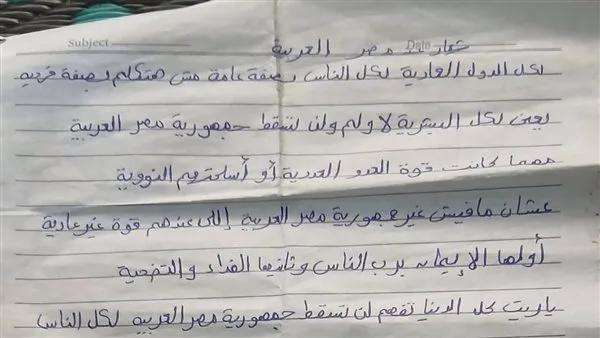 Subject Date
شعار مصر العربية
لكل الدول العادية لكل الناس بصفة عامة مش هتكلم بصفة فرديه
يعنى لكل البشرية لا ولم ولن تسقط جمهورية مصر العربية
مهما كانت قوة العدو العددية أو أسلحتهم النووية
عشان مافيش غير جمهورية مصر العربية إللى عندهم قوة غير عادية
أولها الإيمان برب الناس وثانيها الفداء والتضحية
ياريت كل الدنيا تفهم لن تسقط جمهورية مصر العربيه لكل الناس